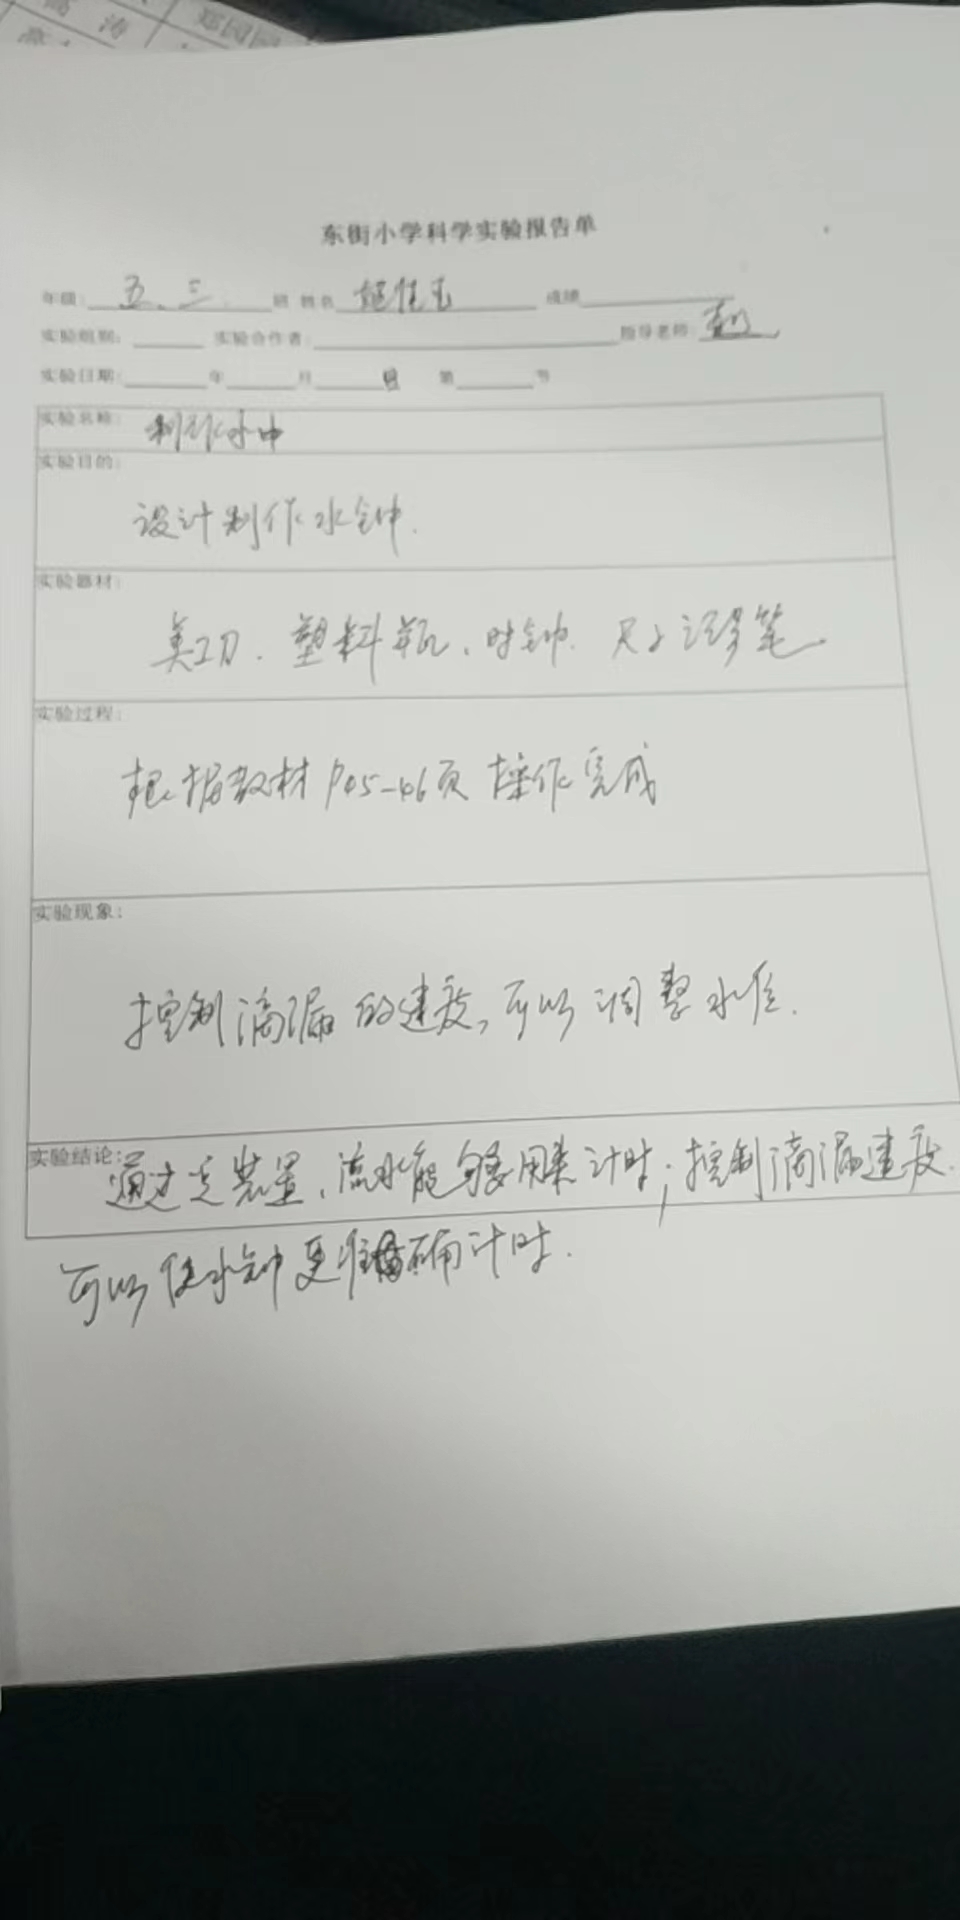 高 涛 郑园
东街小学科学实验报告单
年级: 五.三 班 姓名 佳 成绩
实验组别: 实验合作者: 指导老师:
实验日期: 年 月 日 第 节
实验名称: 制作水中
实验目的:
设计制作水钟.
实验器材:
美工刀. 塑料瓶. 时钟. 尺子 记号笔
实验过程:
根据教材P45-46页操作完成
实验现象:
控制滴漏的速度,可以调整水位.
实验结论: 通过 装置,流水能够用来计时;控制滴漏速度.
可以使水钟更准确计时.